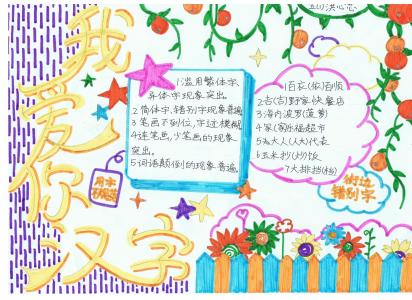 我爱你汉字
1滥用繁体字、
异体字现象突出
2简体字、错别字现象普遍
3笔画不到位,字过模糊
4连笔画,少笔画的现象
突出。
5词语颠倒的现象普遍
用字
1百衣(依)百顺
3海内波罗(菠萝)
4家(家)乐福超市
5太大人(人大)代表
6玉米抄(炒)饭
7大排挡(档)
街边
错别字